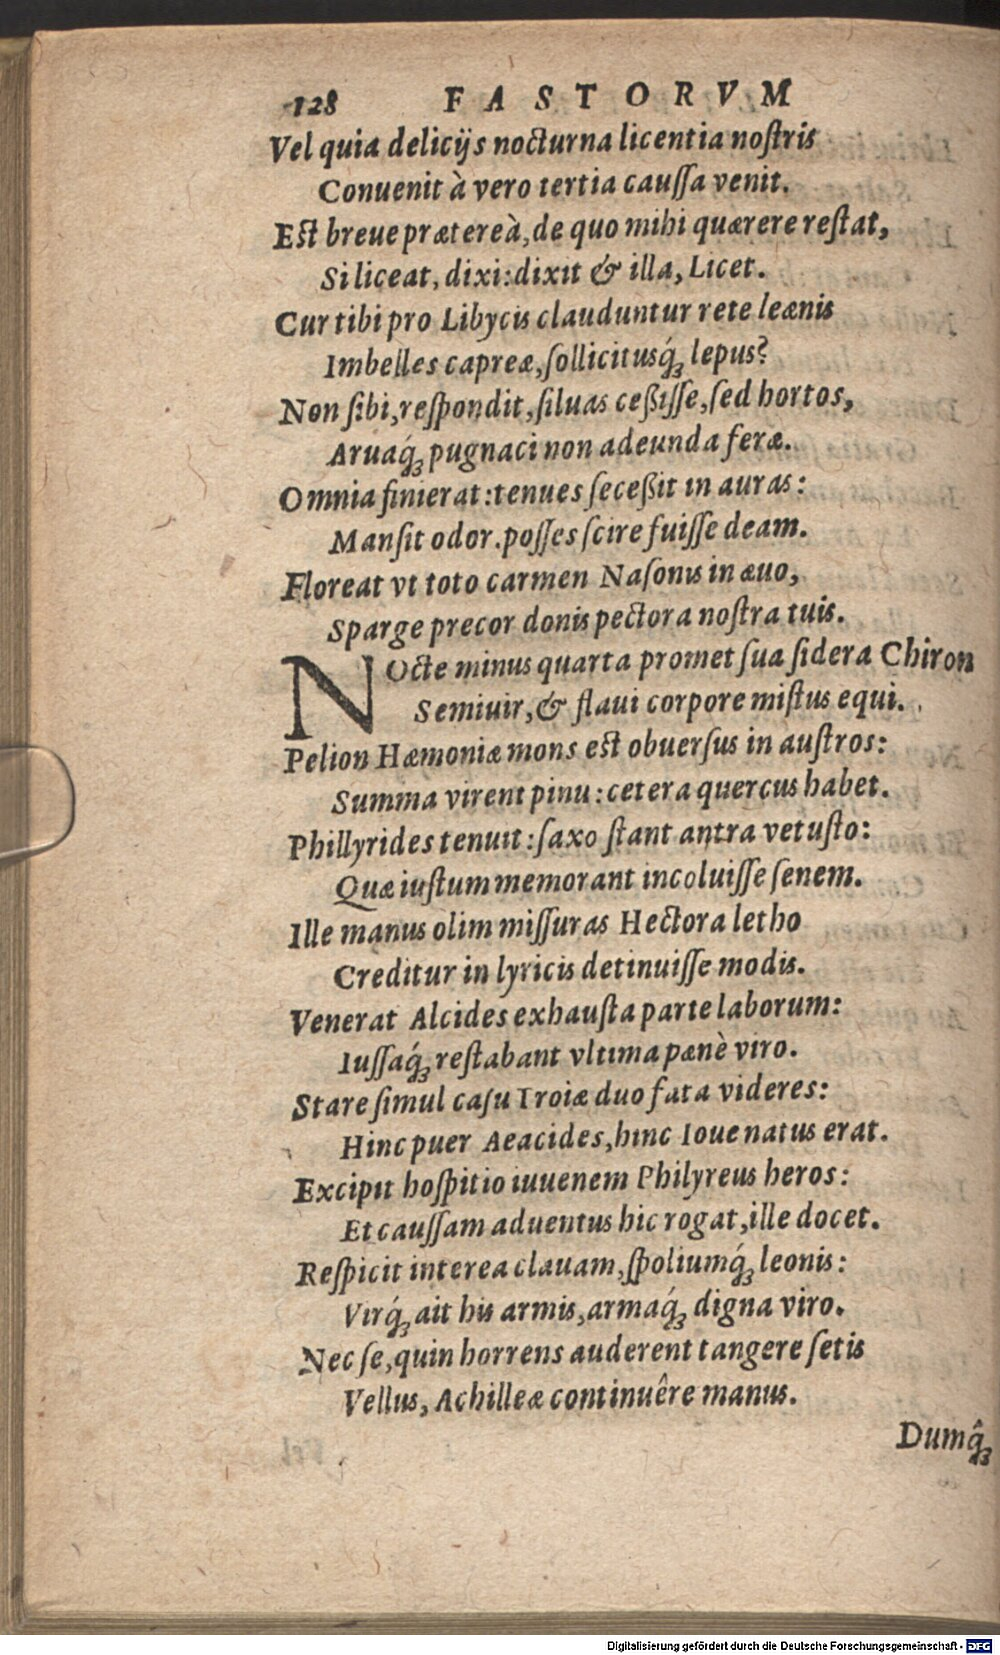 128 FASTORVM
Vel quia delicijs nocturna licentia noſtris
Conuenit à vero tertia cauſſa venit.
Eſt breue prætereà, de quo mihi quærere reſtat,
Si liceat, dixi: dixit & illa, Licet.
Cur tibi pro Libycis clauduntur rete leænis
Imbelles capreæ, ſollicitusq́ꝫ lepus?
Non ſibi, reſpondit, ſiluas ceßiſſe, ſed hortos,
Aruaq́ꝫ pugnaci non adeunda feræ.
Omnia finierat: tenues ſeceßit in auras:
Manſit odor. poſſes ſcire fuiſſe deam.
Floreat vt toto carmen Naſonis in æuo,
Sparge precor donis pectora noſtra tuis.
NOcte minus quarta promet ſua ſidera Chiron
Semiuir, & flaui corpore miſtus equi.
Pelion Hæmoniæ mons eſt obuerſus in auſtros:
Summa virent pinu: cetera quercus habet.
Phillyrides tenuit: ſaxo ſtant antra vetuſto:
Quæ iuſtum memorant incoluiſſe ſenem.
Ille manus olim miſſuras Hectora letho
Creditur in lyricis detinuiſſe modis.
Venerat Alcides exhauſta parte laborum:
Iuſſaq́ꝫ reſtabant vltima pænè viro.
Stare ſimul caſu Troiæ duo fata videres:
Hinc puer Aeacides, hinc Ioue natus erat.
Excipit hoſpitio iuuenem Philyreus heros:
Et cauſſam aduentus hic rogat, ille docet.
Reſpicit interea clauam, ſpoliumq́ꝫ leonis:
Virq́ꝫ ait his armis, armaq́ꝫ digna viro.
Nec ſe, quin horrens auderent tangere ſetis
Vellus, Achilleæ continuêre manus.
Dumq̂ꝫ
Digitalisierung gefördert durch die Deutsche Forschungsgemeinschaft - DFG